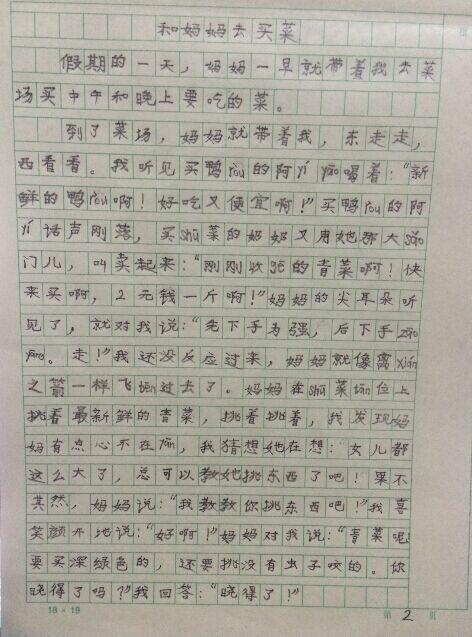 和妈妈去买菜
假期的一天，妈妈一早就带着我去菜
场买中午和晚上要吃的菜。
到了菜场，妈妈就带着我，东走走，
西看看。我听见买鸭ròu的阿yí yāo喝着：“新
鲜的鸭ròu啊！好吃又便宜啊！”买鸭ròu的阿
yí话声刚落，买shū菜的奶奶又用她那大sǎng
门儿，叫卖起来：“刚刚收gē的青菜啊！快
来买啊，2元钱一斤啊！”妈妈的尖耳朵听
见了，就对我说：“先下手为强，后下手zāo
yāng。走！”我还没反应过来，妈妈就像离xián
之箭一样飞bēn过去了。妈妈在shū菜tān位上
挑着最新鲜的青菜，挑着挑着，我发现妈
妈有点心不在yān，我猜想她在想：女儿都
这么大了，总可以教她挑东西了吧！果不
其然，妈妈说：“我教教你挑东西吧！”我喜
笑颜开地说：“好啊！”妈妈对我说：“青菜呢
要买深绿色的，还要挑没有虫子咬的。你
晓得了吗？”我回答：“晓得了！”
18×19
第2页